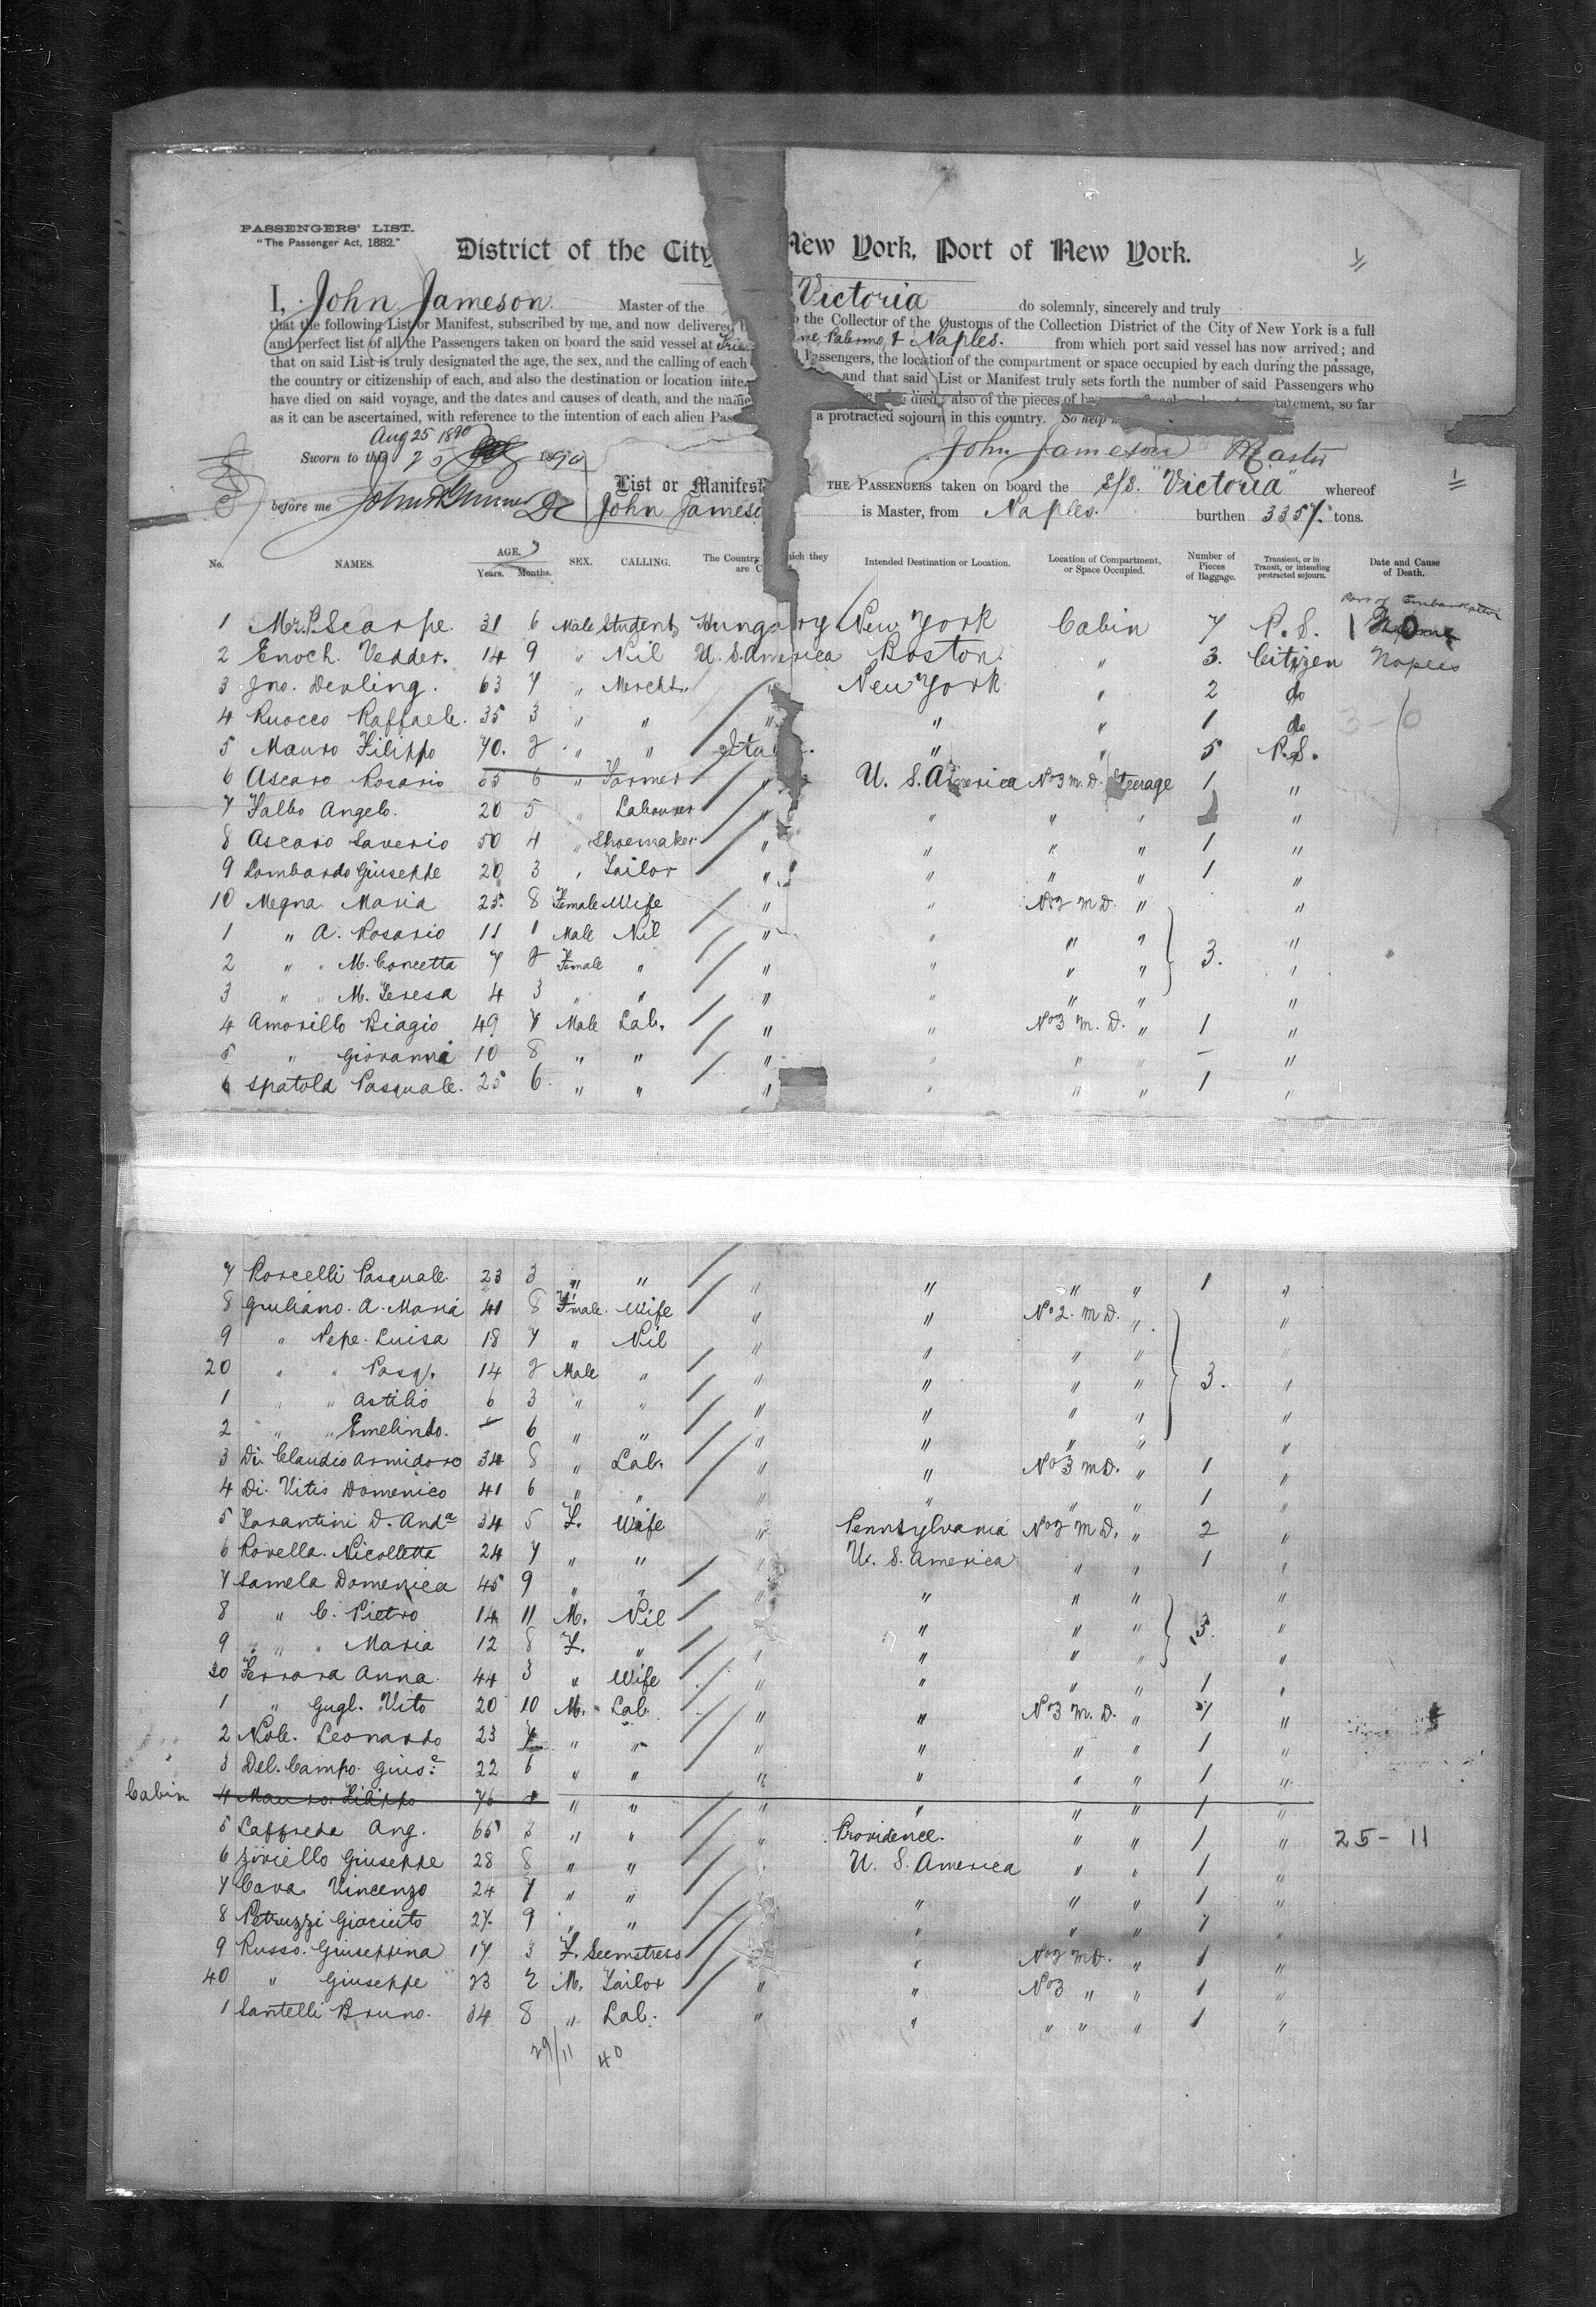 PASSENGERS' LIST.
"The Passenger Act, 1882."
District of the City New York, Port of New York.
I, John Jameson Master of the Victoria do solemnly, sincerely and truly
that the following List or Manifest, subscribed by me, and now delivered the Collector of the Customs of the Collection District of the City of New York is a full
and perfect list of all the Passengers taken on board the said vessel at Palermo & Naples. from which port said vessel has now arrived; and
that on said List is truly designated the age, the sex, and the calling of each Passengers, the location of the compartment or space occupied by each during the passage,
the country or citizenship of each, and also the destination or location inte and that said List or Manifest truly sets forth the number of said Passengers who
have died on said voyage, and the dates and causes of death, and the name died, also of the pieces of so far
as it can be ascertained, with reference to the intention of each alien Pas a protracted sojourn in this country. So help
Aug 25 1890
Sworn to this 25 1890
John Jameson Master
before me
List or Manifest THE PASSENGERS taken on board the S/S. "Victoria" whereof
John Jameso is Master, from Naples. burthen 3357. tons.
No. NAMES. AGE. Years. Months. SEX. CALLING. The Country which they are C Intended Destination or Location. Location of Compartment, or Space Occupied. Number of Pieces of Baggage. Transient, or in Transit, or intending protracted sojourn. Date and Cause of Death.
Port of Embarkation
1 Mr. P. Scarpe. 31 6 Male Student Hungary New York Cabin 7 P.S. 10
2 Enoch Vedder. 14 9 " Nil U.S. America Boston. " 3. Citizen Naples
3 Jno. Derling. 63 7 " Mercht. " New York " 2 do
4 Ruocco Raffaele. 35 3 " " " " " 1 do 3-0
5 Mauro Filippo 70. 2 " " Ita " " 5 P.S.
6 Ascaro Rosario 6 " Farmer " U.S. America No 3 m.D. Steerage 1 "
7 Falbo Angelo. 20 5 " Labourer " " " " "
8 Ascaro Saverio 50 4 " Shoemaker " " " " 1 "
9 Lombardo Giuseppe 20 3 " Tailor " " " " 1 "
10 Megna Maria 25. 8 Female Wife " " No 2 m D. " "
1 " A. Rosario 11 1 Male Nil " " " " "
2 " " M. Concetta 7 2 Female " " " " " 3. "
3 " " M. Teresa 4 3 " " " " " " "
4 Amorillo Biagio 49 7 Male Lab. " " No 3 m.D. " 1 "
5 " Giovanni 10 8 " " " " " " - "
6 Spatola Pasquale. 25 6. " " " " " " 1 "
7 Porcelli Pasquale. 23 3 " " " " " " 1 "
8 Giuliano. A. Maria 41 8 Female. Wife " " No 2. m D. " "
9 " Pepe. Luisa 18 7 " Nil " " " " "
20 " " Pasq. 14 2 Male " " " " " 3. "
1 " " Astilio 6 3 " " " " " " "
2 " " Emelindo. - 6 " " " " " " "
3 Di. Claudio Armidoro 34 8 " Lab. " " No 3 m D. " 1 "
4 Di. Vitis Domenico 41 6 " " " " " " 1 "
5 Tarantini D. Anda 34 5 F. Wife " Pennsylvania No 2 m D. " 2 "
6 Rovella. Nicolletta 24 7 " " U.S. America " " 1 "
7 Samela Domenica 45 9 " " " " " " "
8 " C. Pietro 14 11 M. Nil " " " " 3. "
9 " " Maria 12 8 F. " " " " " "
30 Ferrara Anna. 44 3 " Wife " " " " 1 "
1 " Gugl. Vito 20 10 M. Lab. " " No 3 m.D. " "
2 Nole. Leonardo 23 7 " " " " " " 1 "
3 Del. Campo. Gius.e 22 6 " " " " " " 1 "
Cabin 4 Mauro. Filippo 76 " " " " " " 1 "
5 Laffreda Ang. 65 3 " " " Providence. " " 1 " 25-11
6 Ziviello Giuseppe 28 8 " " U.S. America " " 1 "
7 Cava. Vincenzo 24 7 " " " " " 1 "
8 Petruzzi Giacinto 27. 9 " " " " " 1 "
9 Russo. Giuseppina 17 3 F. Seemstress " No 2 m D. " 1 "
40 " Giuseppe 23 2 M. Tailor " " No 3 " " 1 "
1 Santelli Bruno. 34 8 " Lab. " " " " " 1 "
29/11 40